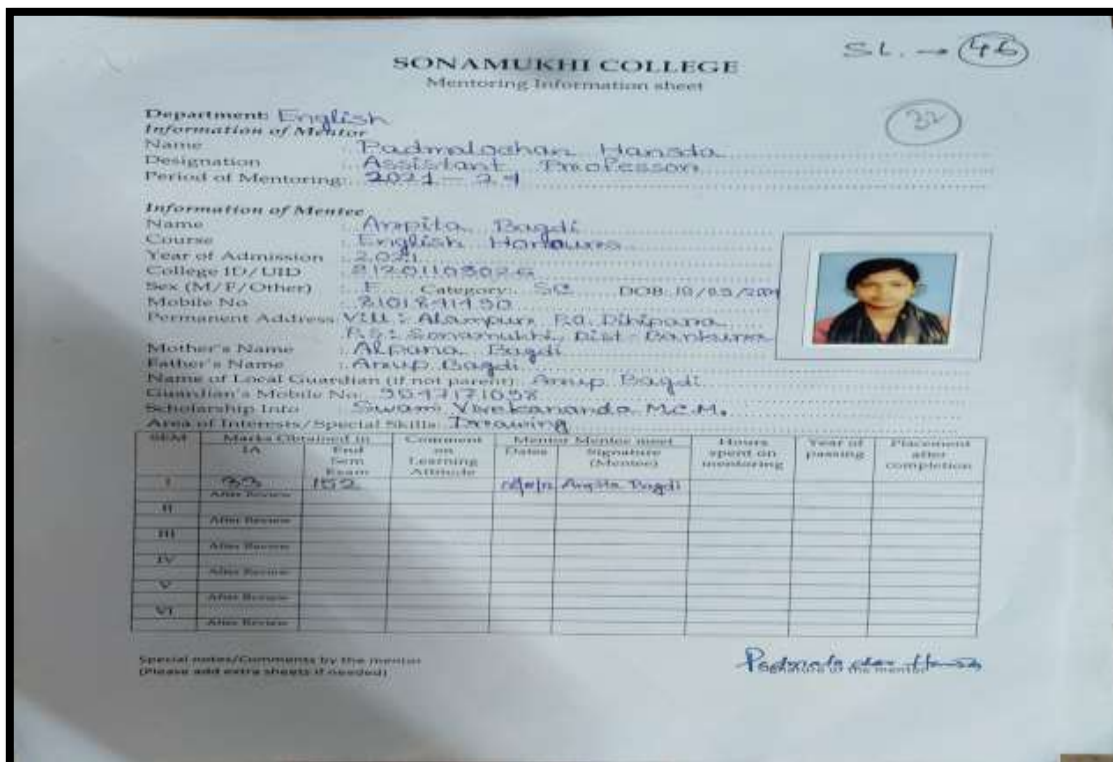 SL. → 46
SONAMUKHI COLLEGE
Mentoring Information sheet
32
Department: English
Information of Mentor
Name : Padmalochan Hansda
Designation : Assistant Professor
Period of Mentoring: 2021 - 24
Information of Mentee
Name : Arpita Bagdi
Course : English Honours
Year of Admission : 2021
College ID/UID :
Sex (M/F/Other) : F Category: SC DOB:
Mobile No :
Permanent Address Vill: Alampur, P.O. Dihipara
P.S: Sonamukhi, Dist- Bankura
Mother's Name : Alpana Bagdi
Father's Name : Anup Bagdi
Name of Local Guardian (if not parent) Anup Bagdi
Guardian's Mobile No:
Scholarship Info : Swami Vivekananda M.C.M.
Area of Interests/Special Skills: Drawing
SEM Marks Obtained in Comment on Learning Attitude Mentor Mentee meet Hours spent on mentoring Year of passing Placement after completion
IA End Sem Exam Dates Signature (Mentee)
I 33 152 Arpita Bagdi
After Review
II
After Review
III
After Review
IV
After Review
V
After Review
VI
After Review
Special notes/Comments by the mentor
(Please add extra sheets if needed)
Padmalochan Hansda
Signature of the mentor